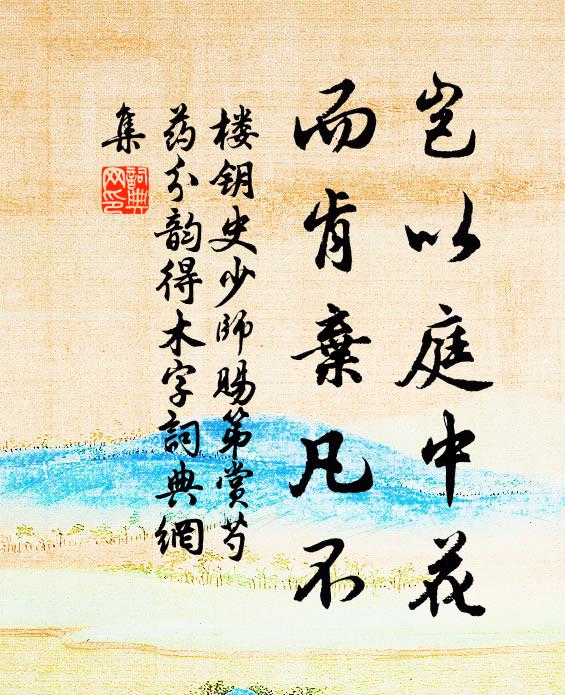 岂以庭中花
而肯棄凡不
楼钥史少师赐第赏芍
药分韵得木字詞典網
集
詞典
网印